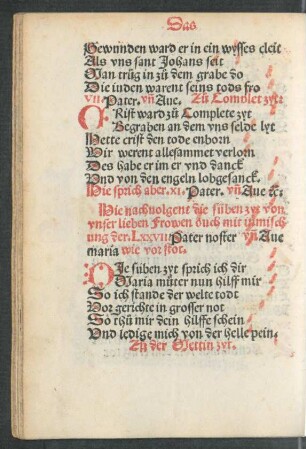 Das
Gewunden ward er in ein wysses cleit
Als vns sant Johans seit
Man trůg in zů dem grabe do
Die iuden warent seins tods fro
VII. Pater. vn̄ Aue. Zů Complet zyt:
CRist ward zů Complete zyt
Begraben an dem vns selde lyt
Hette crist den tode enborn
Wir werent allesammet verlorn
Des habe er im er vnd danck
Vnd von den engeln lobgesanck.
Hie sprich aber .xi. Pater. vn̄ Aue ꝛc:
Hie nachuolgent die süben zyt von
vnser lieben Frowen ouch mit vermisch
ung der .LXXVII. Pater noster vn̄ Aue
maria wie vor stot.
DIe süben zyt sprich ich dir
Maria můter nun hilff mir
So ich stande der welte todt
Vor gerichte in grosser not
So thů mir dein hilffe schein
Vnd ledige mich von der helle pein.
Zů der Mettin zyt.